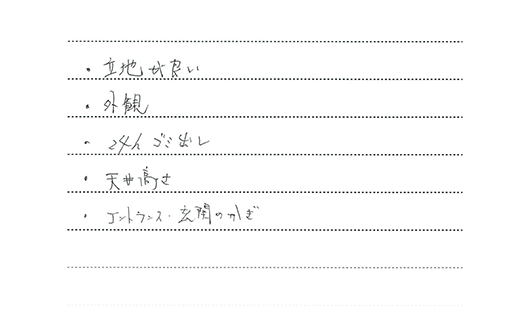 ・立地が良い
・外観
・24h ゴミ出し
・天井高さ
・エントランス・玄関のかぎ